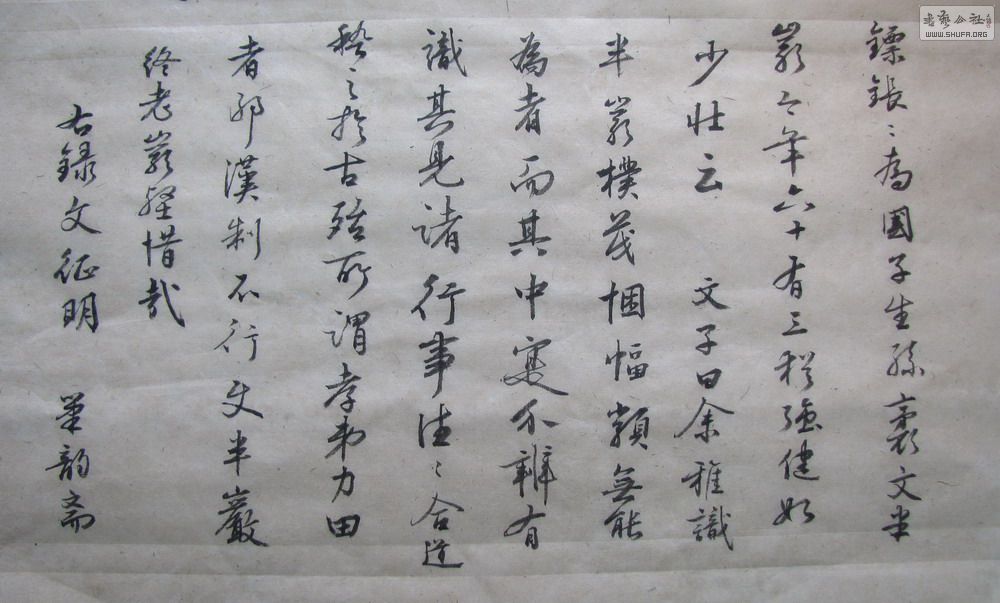 鏢鋹〻為國子生孫袤文半
巖今年六十有三猶強健如
少壯云　文子曰余雅識
半巖樸茂悃愊類無能
為者而其中寔介辨有
識其見諸行事往〻合道
稽之於古殆所謂孝弟力田
者邪漢制不行史半巖
終老巖壑惜哉
右錄文征明　筆韵齋
書藝公社
WWW.SHUFA.ORG